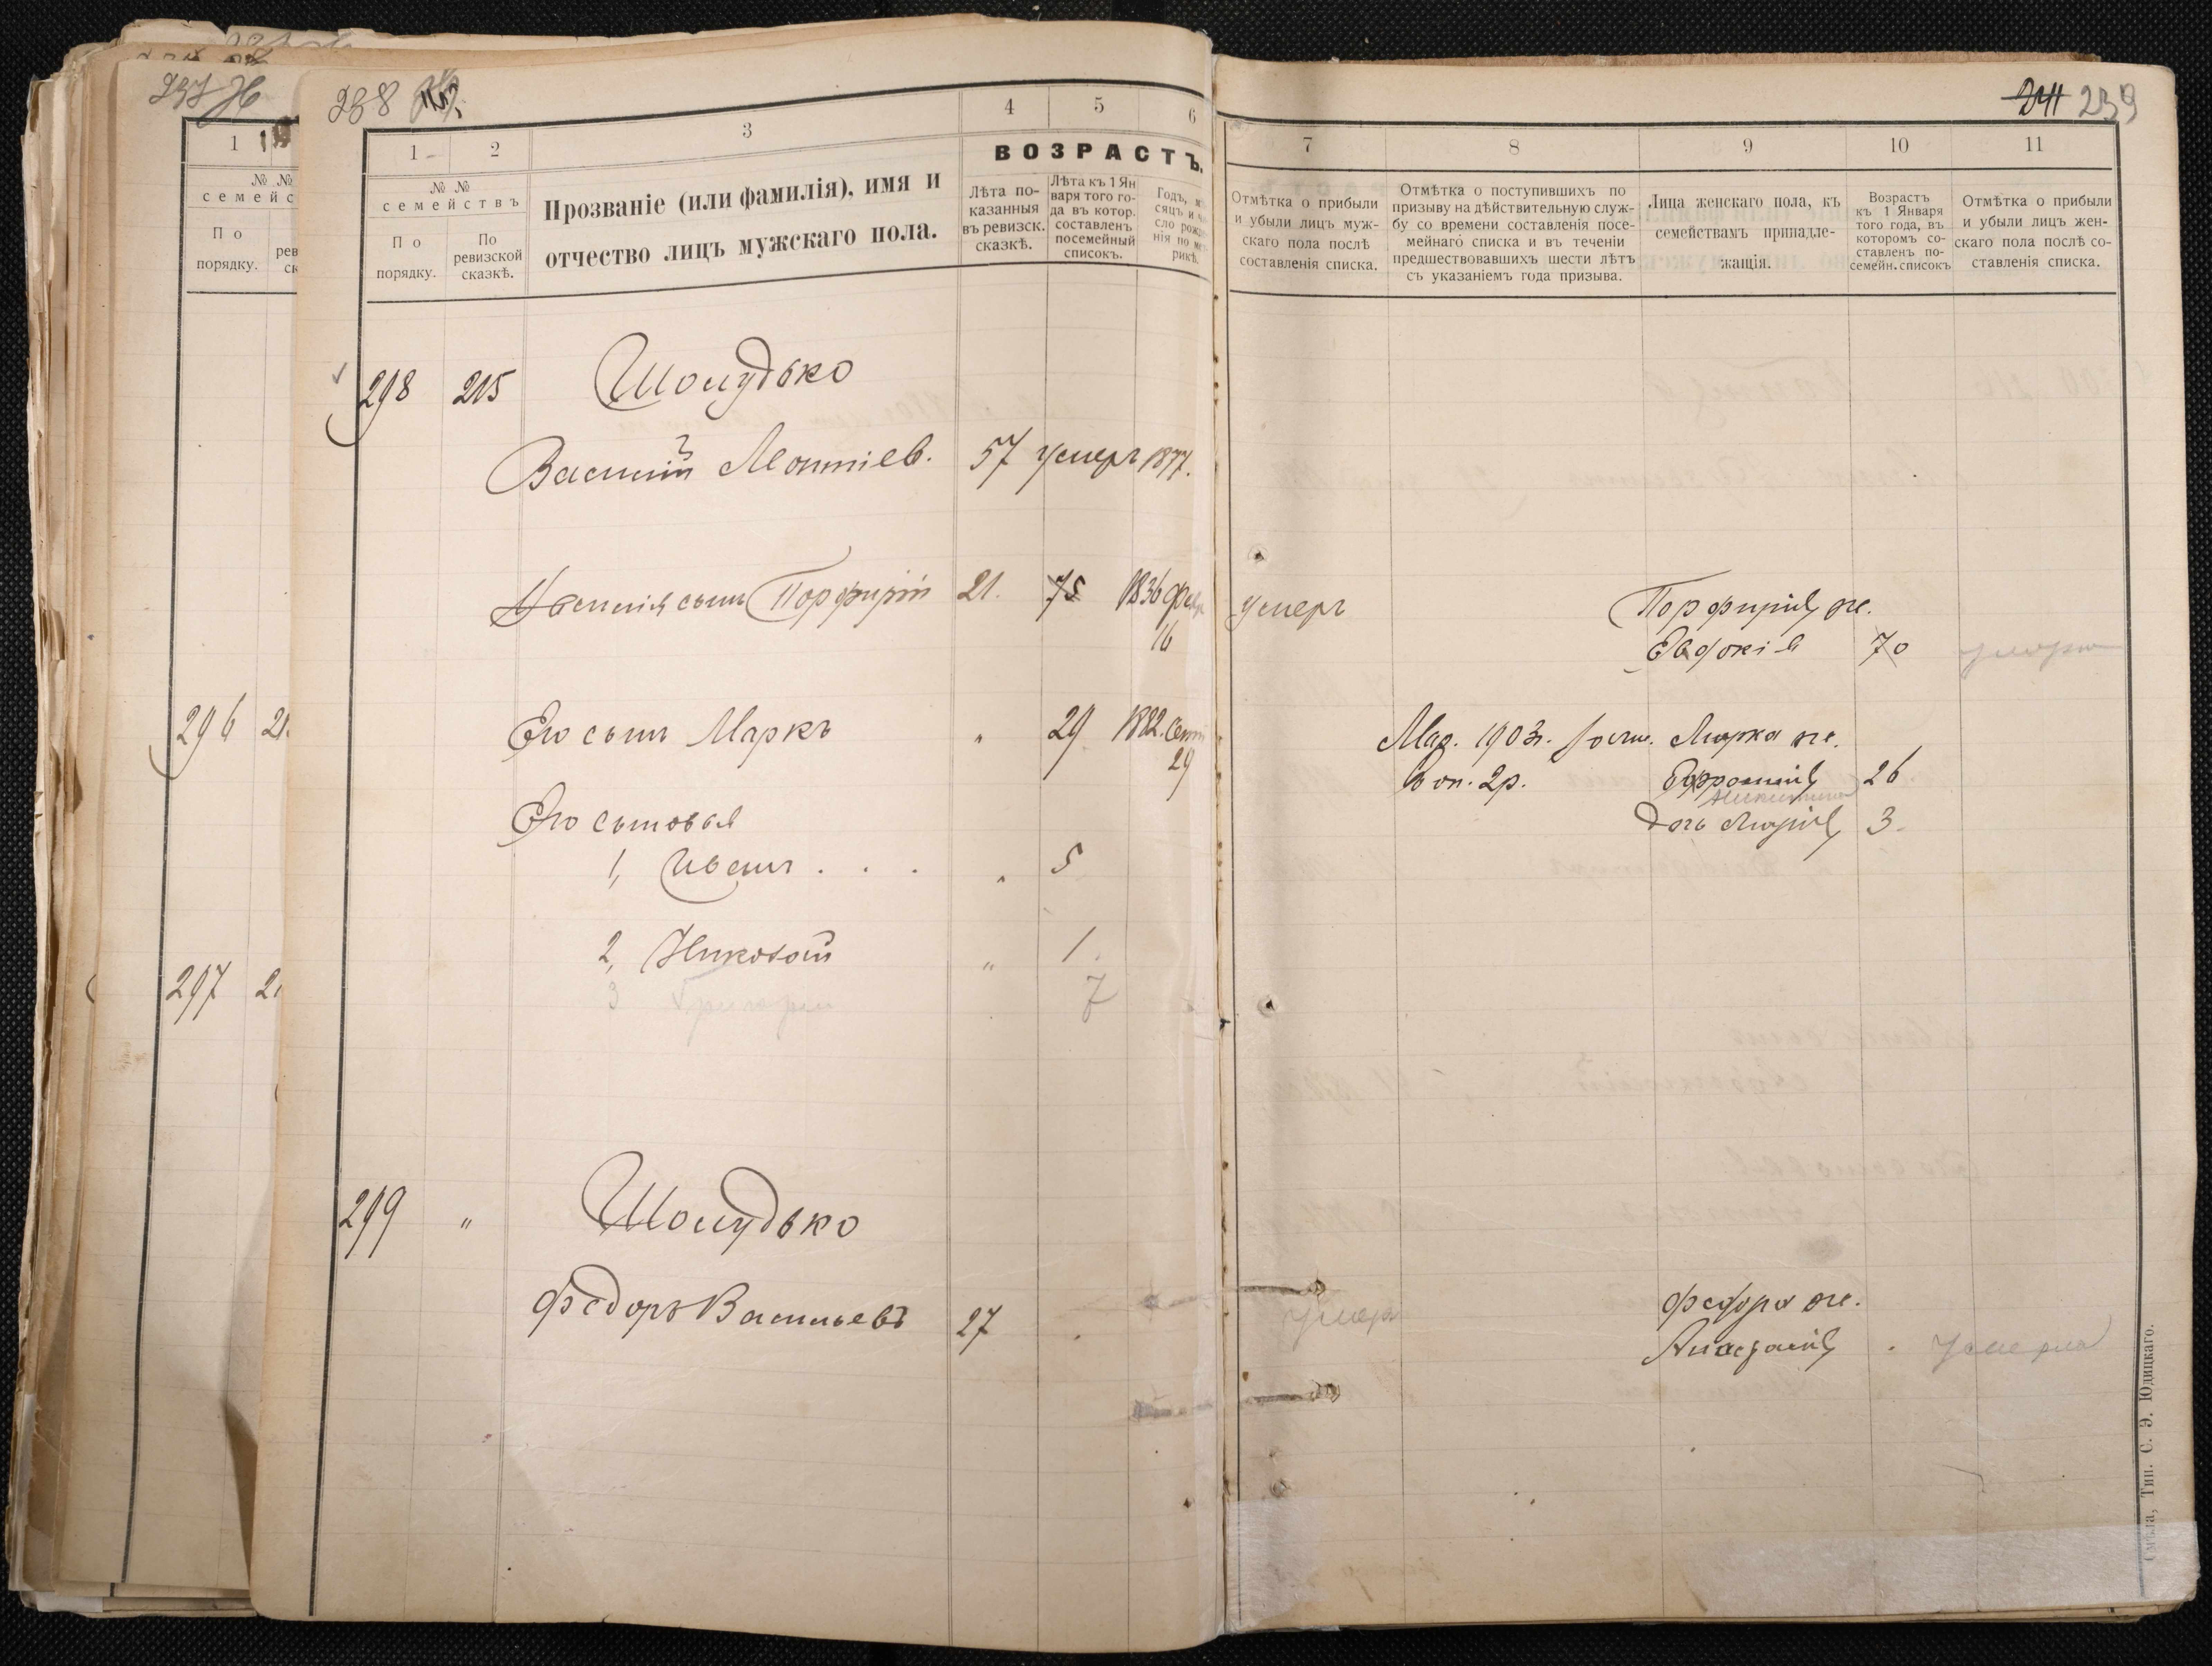 237
1
№ №
семейс
По
порядку.
рев
ск
296 21
297 21
238
1 2 3 4 5 6
№ №
семействъ
По
порядку.
По
ревизской
сказкѣ.
Прозваніе (или фамилія), имя и
отчество лицъ мужскаго пола.
ВОЗРАСТЪ.
Лѣта по-
казанныя
въ ревизск.
сказкѣ.
Лѣта къ 1 Ян
варя того го-
да въ котор.
составленъ
посемейный
списокъ.
Годъ, мѣ
сяцъ и чи
сло рожде
нія по мет
рикѣ.
298 215 Шолудько
Василій Леонтіев. 57 умеръ 1877.
Василія сынъ Порфирій 21. 75 1836 февр
16
Его сынъ Маркъ " 29 1882. Сент
29
Его сыновья
1, Иванъ . . . " 5
2, Николай " 1.
3 Григорій 7
299 " Шолудько
Федоръ Васильевъ 27 .
241 239
7 8 9 10 11
Отмѣтка о прибыли
и убыли лицъ муж-
скаго пола послѣ
составленія списка.
Отмѣтка о поступившихъ по
призыву на дѣйствительную служ-
бу со времени составленія посе-
мейнаго списка и въ теченіи
предшествовавшихъ шести лѣтъ
съ указаніемъ года призыва.
Лица женскаго пола, къ
семействамъ принадле-
жащія.
Возрастъ
къ 1 Января
того года, въ
которомъ со-
ставленъ по-
семейн. списокъ
Отмѣтка о прибыли
и убыли лицъ жен-
скаго пола послѣ со-
ставленія списка.
умеръ Порфирія же.
Евдокія 70 умерла
1903г. Марка же.
2р. Ефросинія 26
Дочь Марія 3.
умеръ Федора же.
Анастасія . умерла
Смѣла, Тип. С. Э. Юдицкаго.